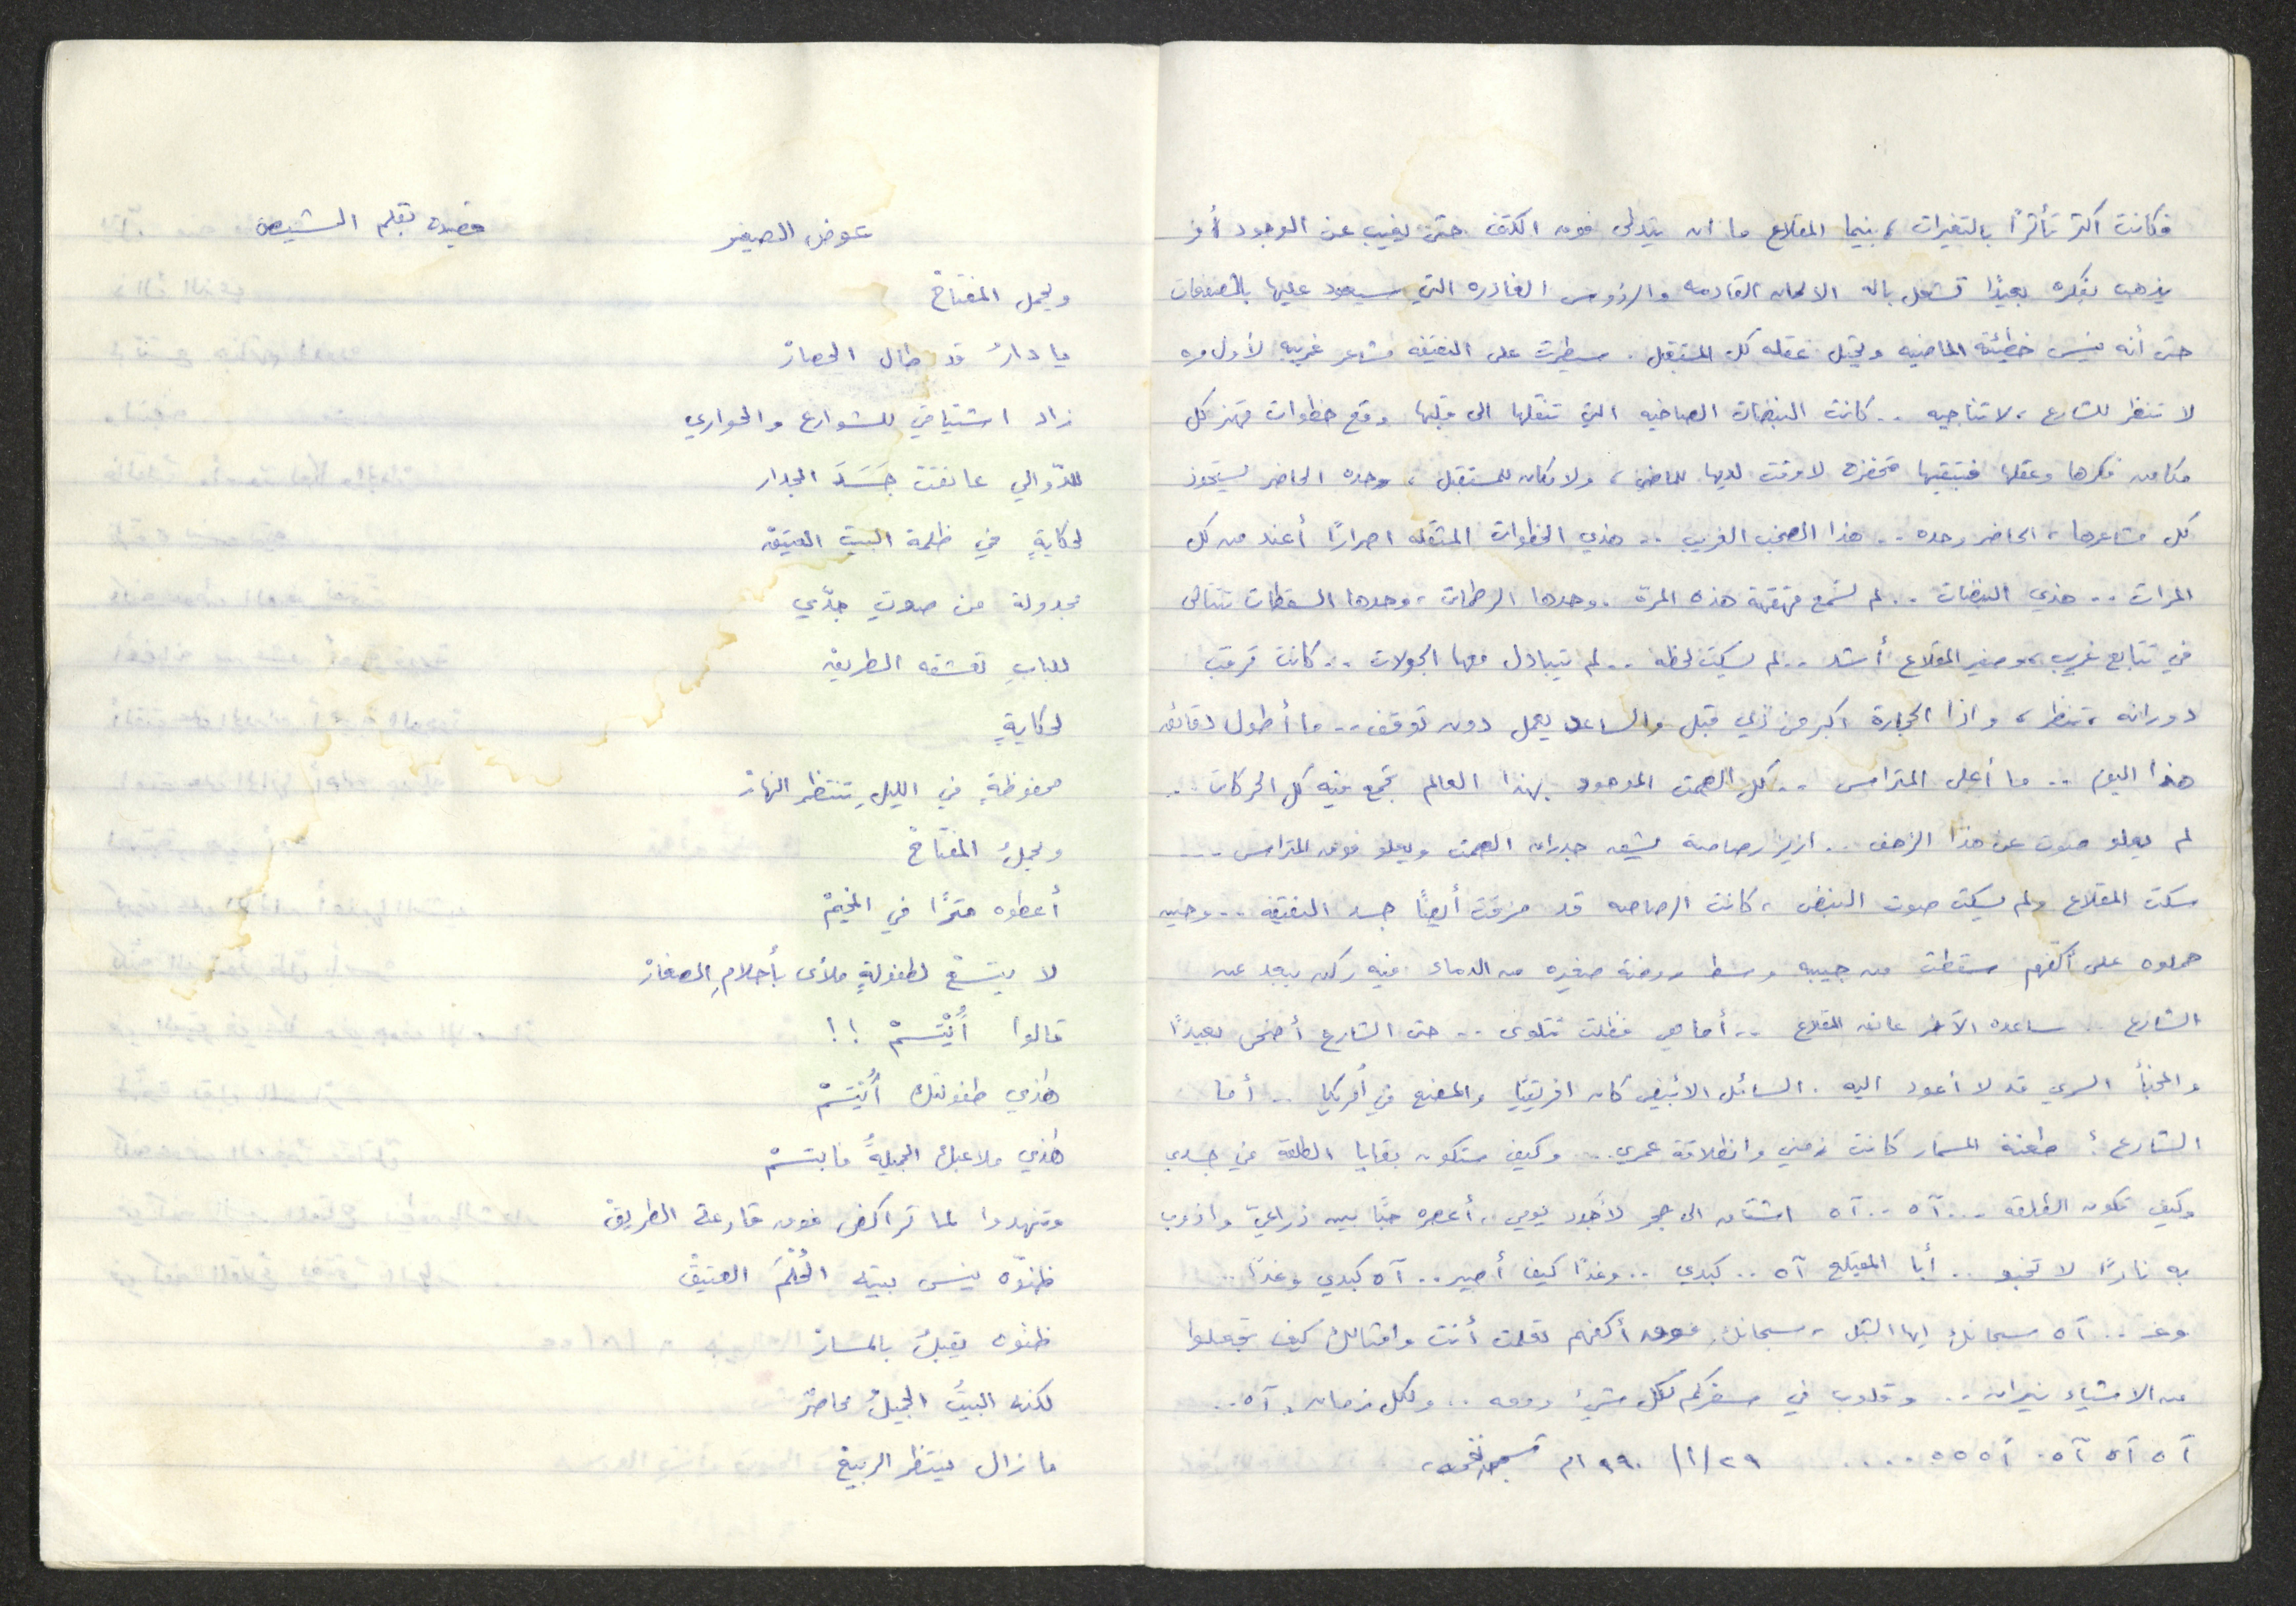 فكانت اكثر تأثرًا بالتغيرات، بينما المقلاع ما ان يتدلى فوق الكتف حتى يغيب عن الوجود أو
يذهب بفكره بعيدًا تشغل باله الالحان القادمه والرؤوس الغادره التي سيعود عليها بالصفعات
حتى أنه ينسى خطيئة الماضيه ويحتل عقله كل المستقبل. سيطرت على النقيفه مشاعر غريبه لأول مره
لا تنظر للشارع، لا تناجيه .. كانت النبضات الصاخبه التي تنقلها الى قلبها وقع خطوات تهز كل
مكامن فكرها وعقلها فتبقيها محفزه لا وقت لديها للماضي، ولا مكان للمستقبل، وحده الحاضر يستحوذ
كل مشاعرها، الحاضر وحده .. هذا الصخب الغريب .. هذي الخطوات المثقله اصرارًا أعند من كل
المرات .. هذي النبضات .. لم تسمع قهقهة هذه المرة. وحدها الرطمات، وحدها السقطات تتتالى
في تتابع غريب، وصفير المقلاع أشد .. لم يسكت لحظه .. لم يتبادل معها الجولات .. كانت ترقب
دورانه، تنظر، واذا الحجارة اكبر من ذي قبل والساعد يعمل دون توقف .. ما أطول دقائق
هذا اليوم .. ما أعلى المتراس .. كل الصمت الموجود بهذا العالم تجمع فيه كل الحركات ..
لم يعلو صوت عن هذا الزحف .. ازيز رصاصة يشق جدران الصمت ويعلو فوق المتراس ...
سكت المقلاع ولم يسكت صوت النبض، كانت الرصاصه قد مزقت أيضًا جسد النقيفه .. وحين
حملوه على أكفهم سقطت من جيبه وسط روضة صغيره من الدماء فيه ركن يبعد عن
الشارع .. ساعده الآخر عانق المقلاع .. أما هي فظلت تتلوى .. حتى الشارع أضحى بعيدًا
والمخبأ السري قد لا أعود اليه. السائل الأبيض كان افريقيًا والمصنع في أمريكا .. أما
الشارع؟ طعنة المسمار كانت زمني وانطلاقة عمري .. وكيف ستكون بقايا الطلقة في جسدي
وكيف تكون الطلقة ... آه .. آه اشتاق الى حجر لأجود يومي، أعصره حبًا بين ذراعيّ واذوب
به نارًا لا تخبو .. أبا المقيلع آه .. كبدي .. وغدًا كيف أصير .. آه كبدي وغدًا ..
وغـ .. آه سبحانك ايها الشبل، سبحانك، فوق أكفهم نقلت أنت وامثالك كيف تجعلوا
من الاشياء نيران .. وقلوب في سفركم لكل شيئ روعه .. ولكل زمان، آه ..
آه آه آه. آه ه ه ه .... ٢٩/١/١٩٩٠م
عوض الصغير
قصيدة بقلم الشيص
ويحمل المفتاحْ
يا دارُ قد طال الحصارْ
زاد اشتياقي للشوارع والحواري
للدّوالي عانقت جَسَدَ الجدار
لحكايةٍ في ظلمة البيت العتيقْ
مجدولة من صوتِ جدّي
للبابِ تعشقه الطريقْ
لحكايةٍ
محفوظةٍ في الليلِ تنتظر النهارْ
ويحملُ المفتاحْ
أعطوه مترًا في المخيمْ
لا يتسعْ لطفولةٍ ملأى بأحلامِ الصغارْ
قالوا ابْتَسِمْ !!
هذي طفولتك ابْتَسِمْ
هذي ملاعبك الجميلةُ فابتسمْ
وتنهدوا لما تراكض فوق قارعة الطريقْ
ظنوّه ينسى بيته الحُلْمَ العتيقْ
ظنوّه يقبلُ بالمسارْ
لكنه البيتُ الجميلُ محاصرٌ
ما زال ينتظر الربيعْ